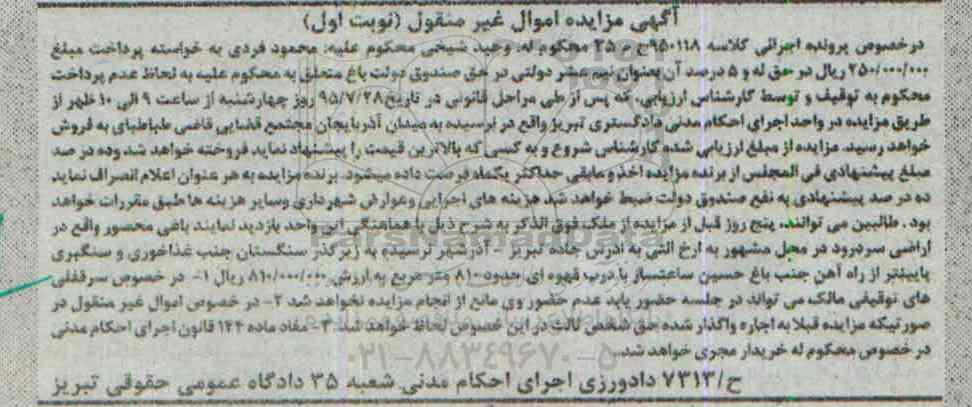 آگهی مزایده اموال غیر منقول (نوبت اول)
درخصوص پرونده اجرائی کلاسه ۹۵۰۱۱۸ج م ۳۵ محکوم له: وحید شیخی محکوم علیه: محمود فردی به خواسته پرداخت مبلغ
۲۵۰/۰۰۰/۰۰۰ ریال در حق له و ۵ درصد آن بعنوان نیم عشر دولتی در حق صندوق دولت باغ متعلق به محکوم علیه به لحاظ عدم پرداخت
محکوم به توقیف و توسط کارشناس ارزیابی، که پس از طی مراحل قانونی در تاریخ ۹۵/۷/۲۸ روز چهارشنبه از ساعت ۹ الی ۱۰ ظهر از
طریق مزایده در واحد اجرای احکام مدنی دادگستری تبریز واقع در نرسیده به میدان آذربایجان مجتمع قضایی قاضی طباطبای به فروش
خواهد رسید. مزایده از مبلغ ارزیابی شده کارشناس شروع و به کسی که بالاترین قیمت را پیشنهاد نماید فروخته خواهد شد وده در صد
مبلغ پیشنهادی فی المجلس از برنده مزایده اخذ و مابقی حداکثر یکماه فرصت داده میشود. برنده مزایده به هر عنوان اعلام انصراف نماید
ده در صد پیشنهادی به نفع صندوق دولت ضبط خواهد شد. هزینه های اجرایی وعوارض شهرداری وسایر هزینه ها طبق مقررات خواهد
بود . طالبین می توانند، پنج روز قبل از مزایده از ملک فوق الذکر به شرح ذیل با هماهنگی این واحد بازدید نمایند باغی محصور واقع در
اراضی سردرود در محل مشهور به ارخ التی به آدرس جاده تبریز - آذرشهر نرسیده به زیرگذر سنگستان جنب غذاخوری و سنگبری
پایینتر از راه آهن جنب باغ حسین ساعتساز با درب قهوه ای حدود ۸۱۰ متر مربع به ارزش ۸۱۰/۰۰۰/۰۰۰ ریال ۱- در خصوص سرقفلی
های توقیفی مالک می تواند در جلسه حضور یابد عدم حضور وی مانع از انجام مزایده نخواهد شد ۲- در خصوص اموال غیر منقول در
صورتیکه مزایده قبلا به اجاره واگذار شده حق شخص ثالث در این خصوص لحاظ خواهد شد. ۳- مفاد ماده ۱۴۴ قانون اجرای احکام مدنی
در خصوص محکوم له خریدار مجری خواهد شد..
ح/۷۳۱۳ دادورزی اجرای احکام مدنی شعبه ۳۵ دادگاه عمومی حقوقی تبریز
ParsNamadData
۰۲۱-۸۸۳۴۹۶۷۰-۵